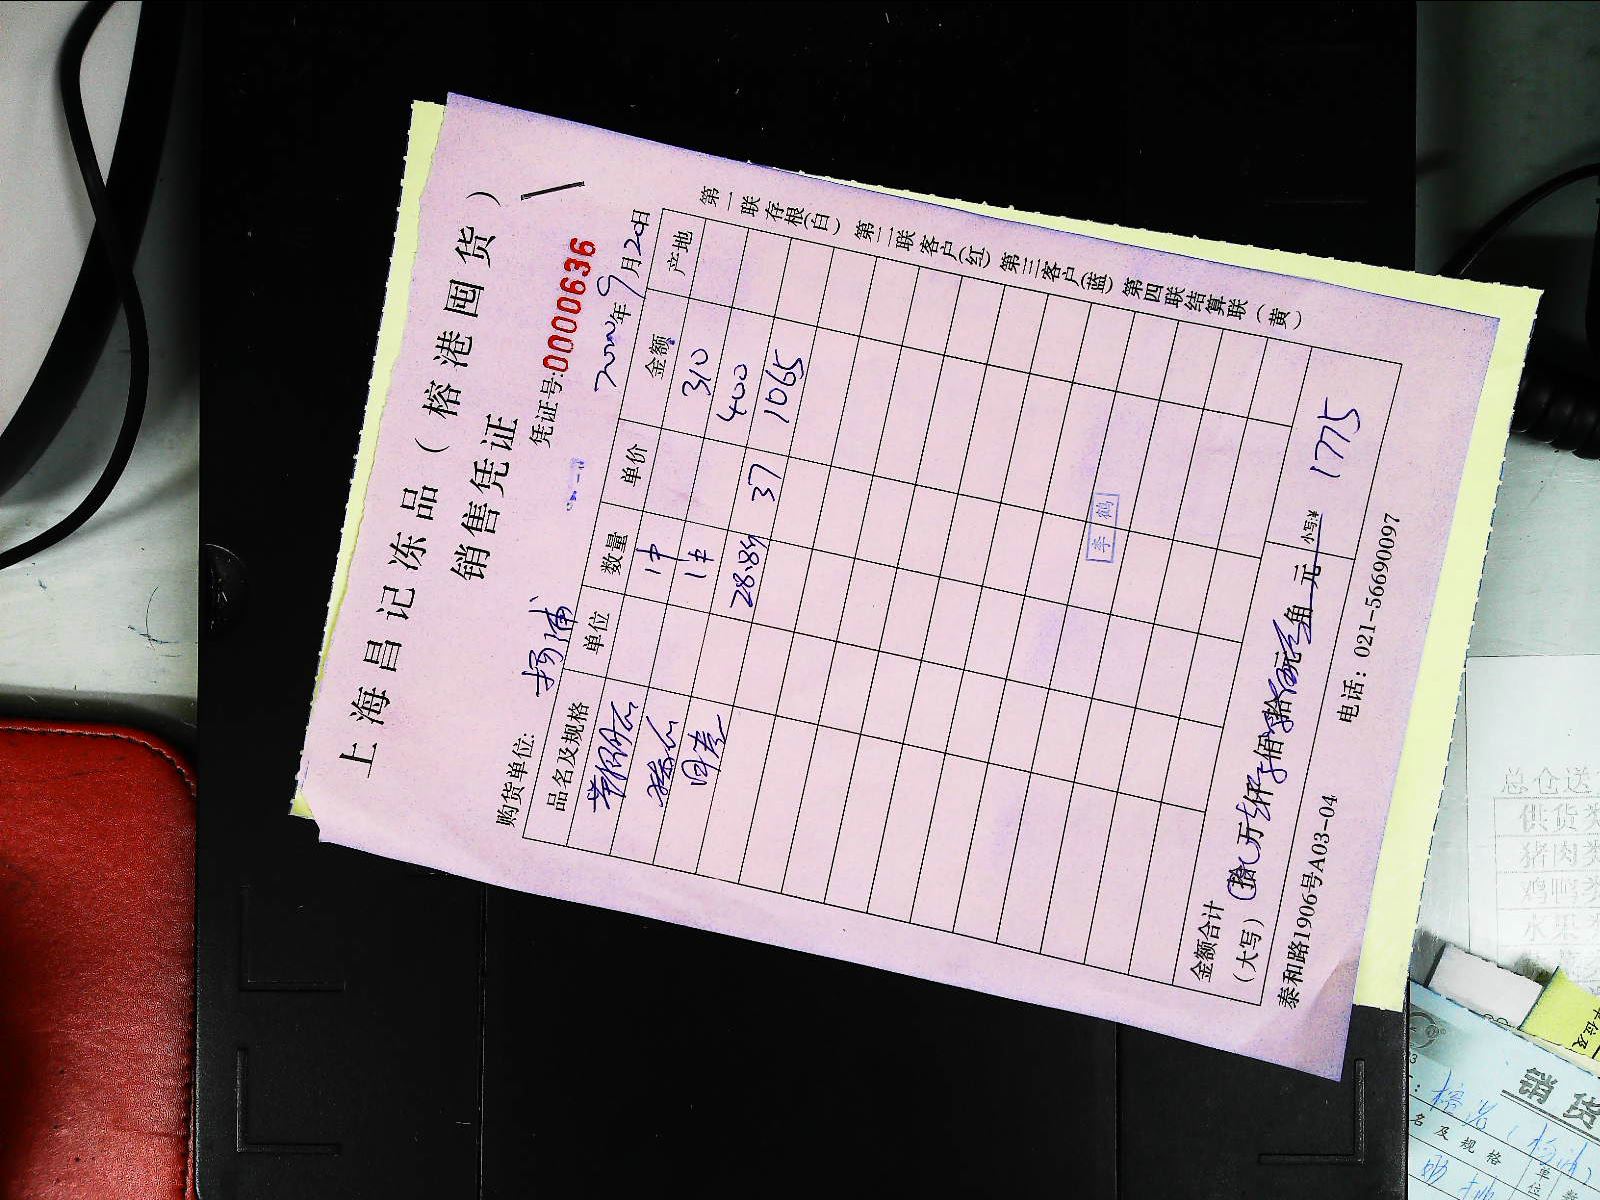 上海昌记冻品（榕港囤货）
销售凭证
凭证号:0000636
购货单位: 杨浦 2020年9月20日
品名及规格 单位 数量 单价 金额 产地
1件 310
1件 400
28.8斤 37 1065
李鹤
金额合计
（大写） 拾 万 仟 佰 拾 元 角 元 小写:¥ 1775
泰和路1906号A03-04 电话：021-56690097
第一联存根(白) 第二联客户(红) 第三客户(蓝) 第四联结算联（黄）
总仓送
供货类
猪肉类
鸡鸭类
水果类
销货
名及规格 单位